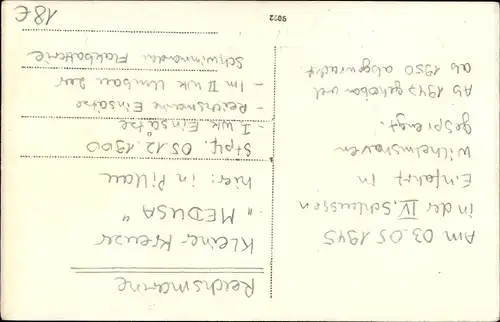 Reichsmarine
Kleiner Kreuzer
"MEDUSA"
hier: in Pillau
Stplf. 05.12.1900
- I WK Einsätze
- Reichsmarine Einsätze
- Im II WK Umbau zur
Schwimmenden Flakbatterie
Am 03.05.1945
in der IV. Schleusen
Einfahrt in
Wilhelmshaven
gesprengt.
Ab 1947 gehoben und
ab 1950 abgewrackt
18€